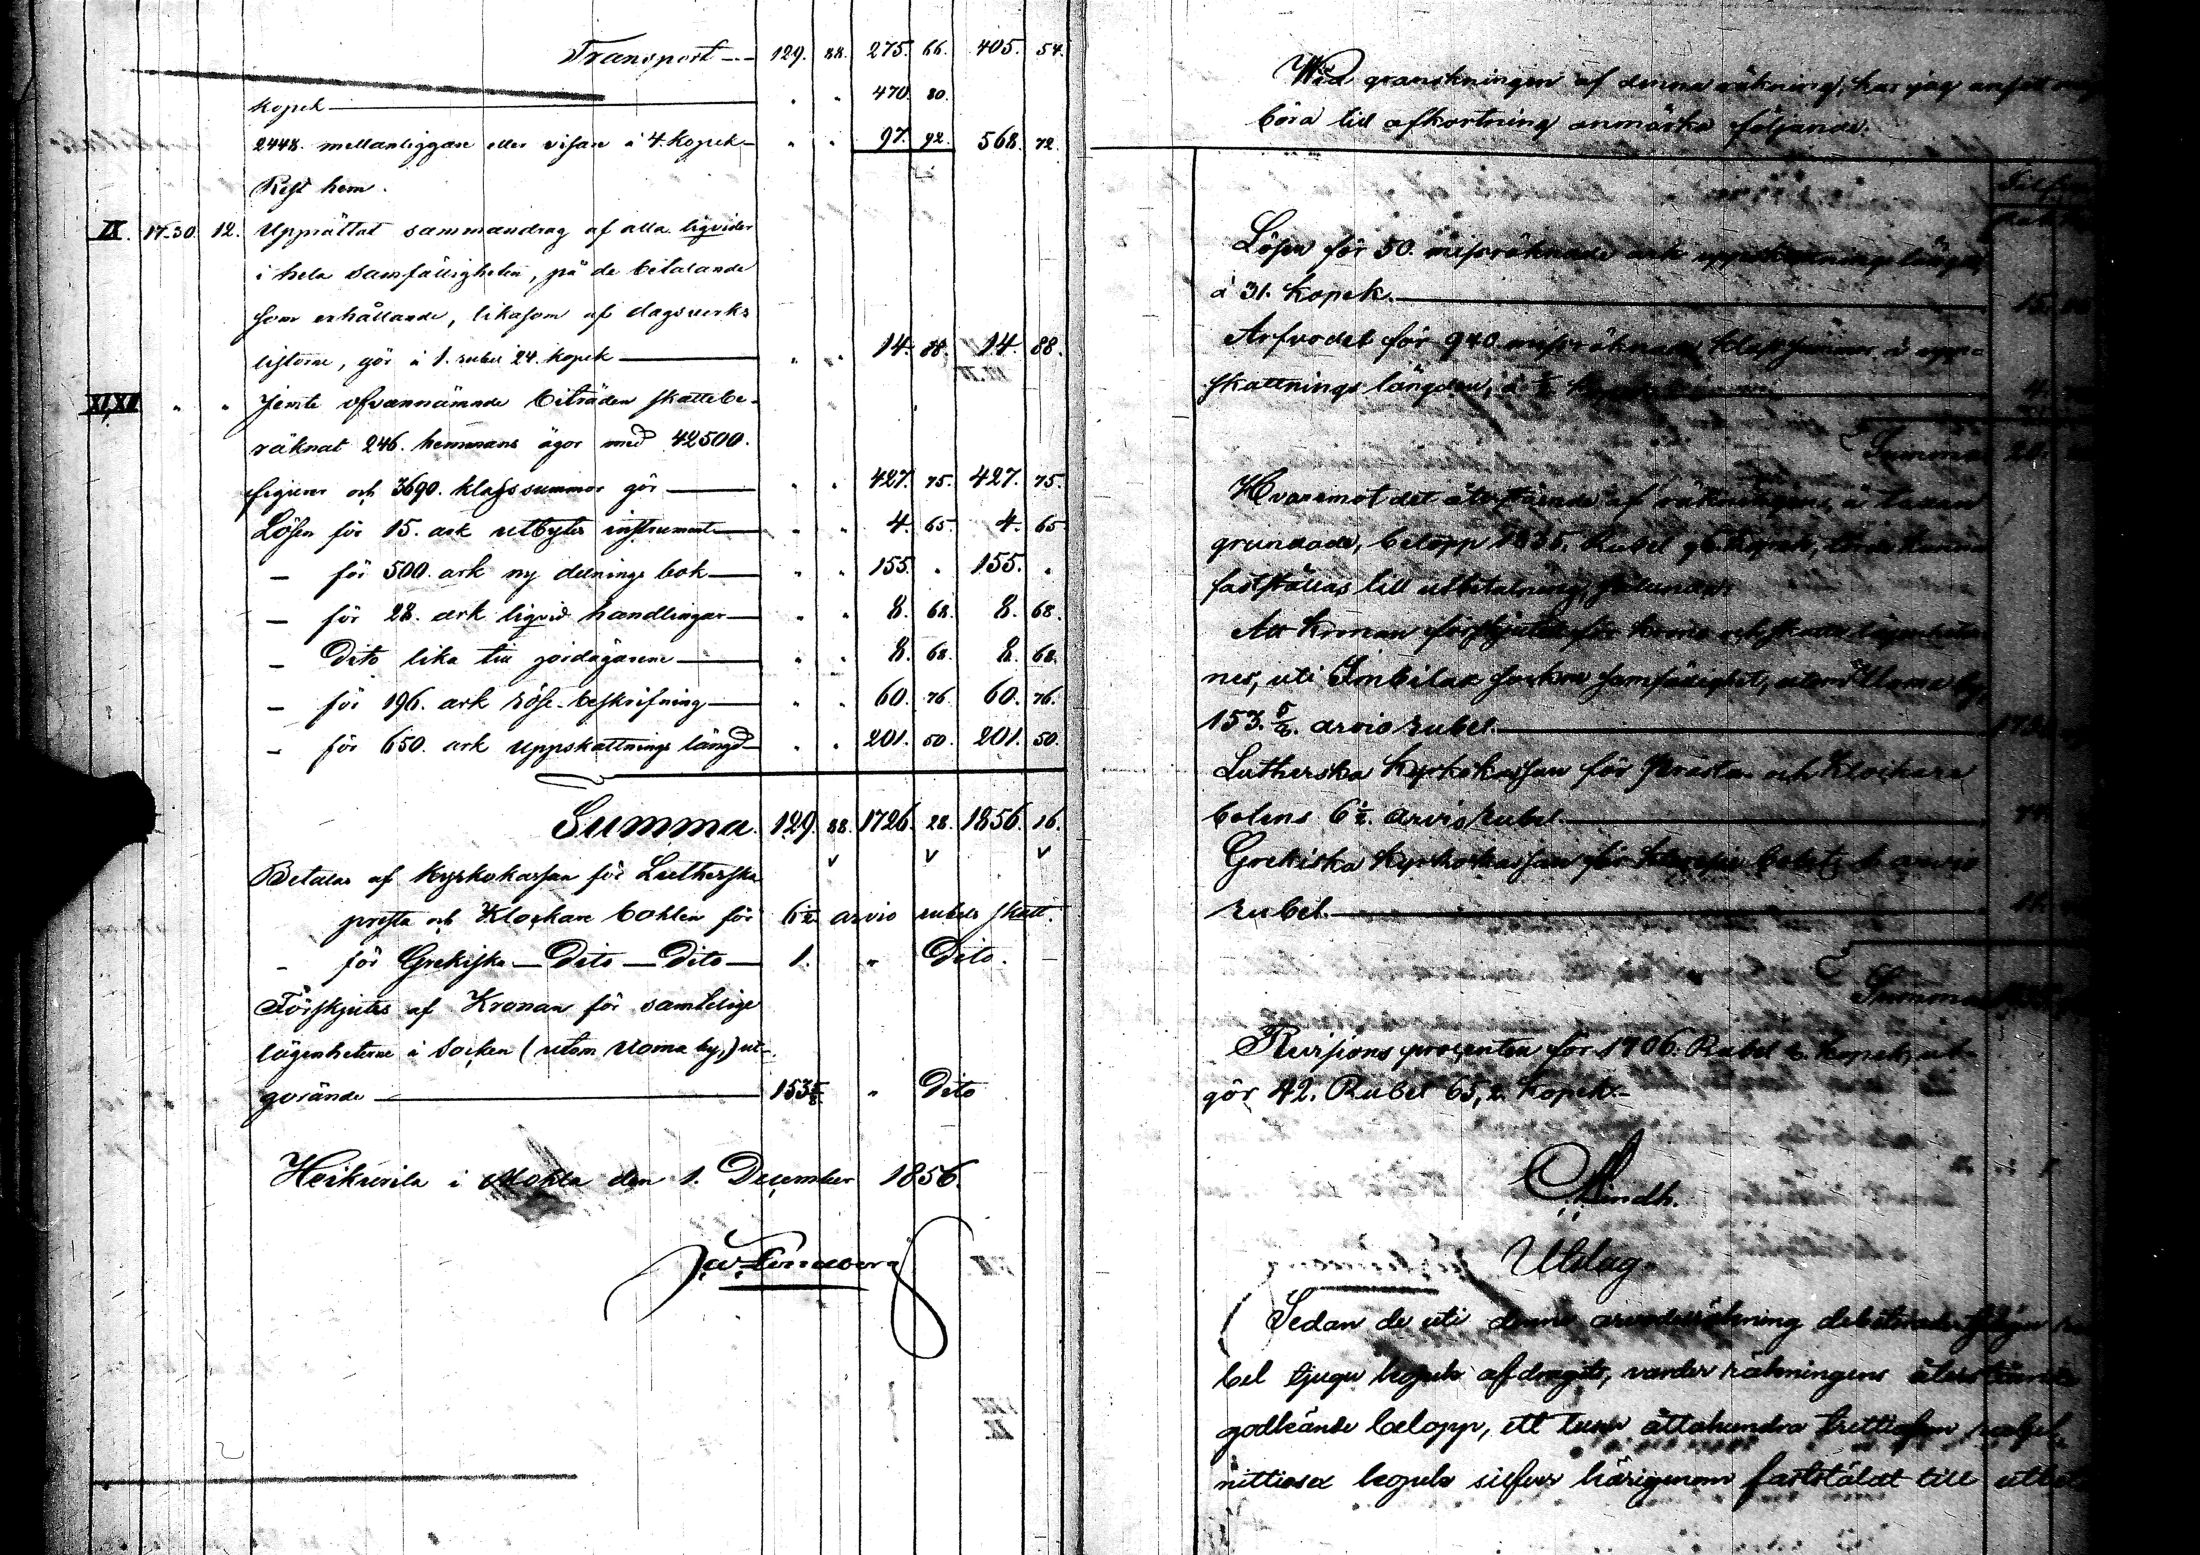 Transport 129. 88. 275. 66. 405. 54.
Kopek " " 470. 80.
2448. mellanliggare eller visare à 4. Kopek " " 97. 92. 568. 72.
Rest hem.
IX. 17-30. 12. Upprättat sammandrag af alla liqvider
i hela samfälligheten, på de betalande
som erhållande, likasom af dagsverks
listorne, gör à 1. rubel 24. kopek " " 14. 88. 14. 88.
XI, XII " " Jemte ofvannämnde biträden skattebe-
räknat 246. hemmans ägor med 42500.
figurer och 3690. klasssummor gör " " 427. 75. 427. 75.
Lösen för 15. ark utbytes instrument " " 4. 65. 4. 65
— för 500. ark ny delnings bok " " 155. " 155. "
— för 28. ark liqvid handlingar " " 8. 68. 8. 68.
— Dito lika till jordägarene " " 8. 68. 8. 68.
— för 196. ark röse-beskrifning " " 60. 76. 60. 76.
— för 650. ark uppskattnings längd " " 201. 50. 201. 50.
Summa. 129. 88. 1726. 28. 1856. 16.
Betalas af Kyrkokassan för Lutherska
presta och Klockare bohlen för 6½ arvio rubels skatt.
- för Grekiska — Dito — Dito — 1. " Dito.
Förskjutes af Kronan för samtelige
lägenheterne i Socken (utom Uoma by,) ut-
görande 153 5/8. " Dito
Heikurila i Mohla den 1. December 1856.
Wid granskningen af denna räkning, har jag ansett mig
böra till afkortning anmärka följande.
Lösen för 50. missräknade ark uppskattnings längd
à 31. Kopek. 15.
Arfvodet för 940. missräknade klasssummor i upp-
skattnings längden, à 4.
Summa 20.
Hvaremot det återstående af räkningens, à taxan
grundade, belopp 1835. Rubel 96. kopek, torde kunna
fastställas till utbetalning, sålunda:
Att Kronan förskjuter för krono och skatte lägenheter
ne, uti Imbilax socken samfällighet, utom Uoma by,
153. 5/8. arvio rubel.
Lutherska Kyrkokassan för Presta- och Klockare
bolens 6½. arvio rubel
Grekiska Kyrkokassan för 1. arvio
rubel.
Summa
Revisions procenten för 1706. Rubel 6. kopek, ut-
gör 42. Rubel 65,2. Kopek.-
Utslag.
Sedan de uti denna arvodesräkning debiterade
bel tjugu kopek afdragits, varder räkningens återstående
godkände belopp, ett tusen åttahundra trettiofem rubel
nittiosex kopek silfver härigenom fastställdt till